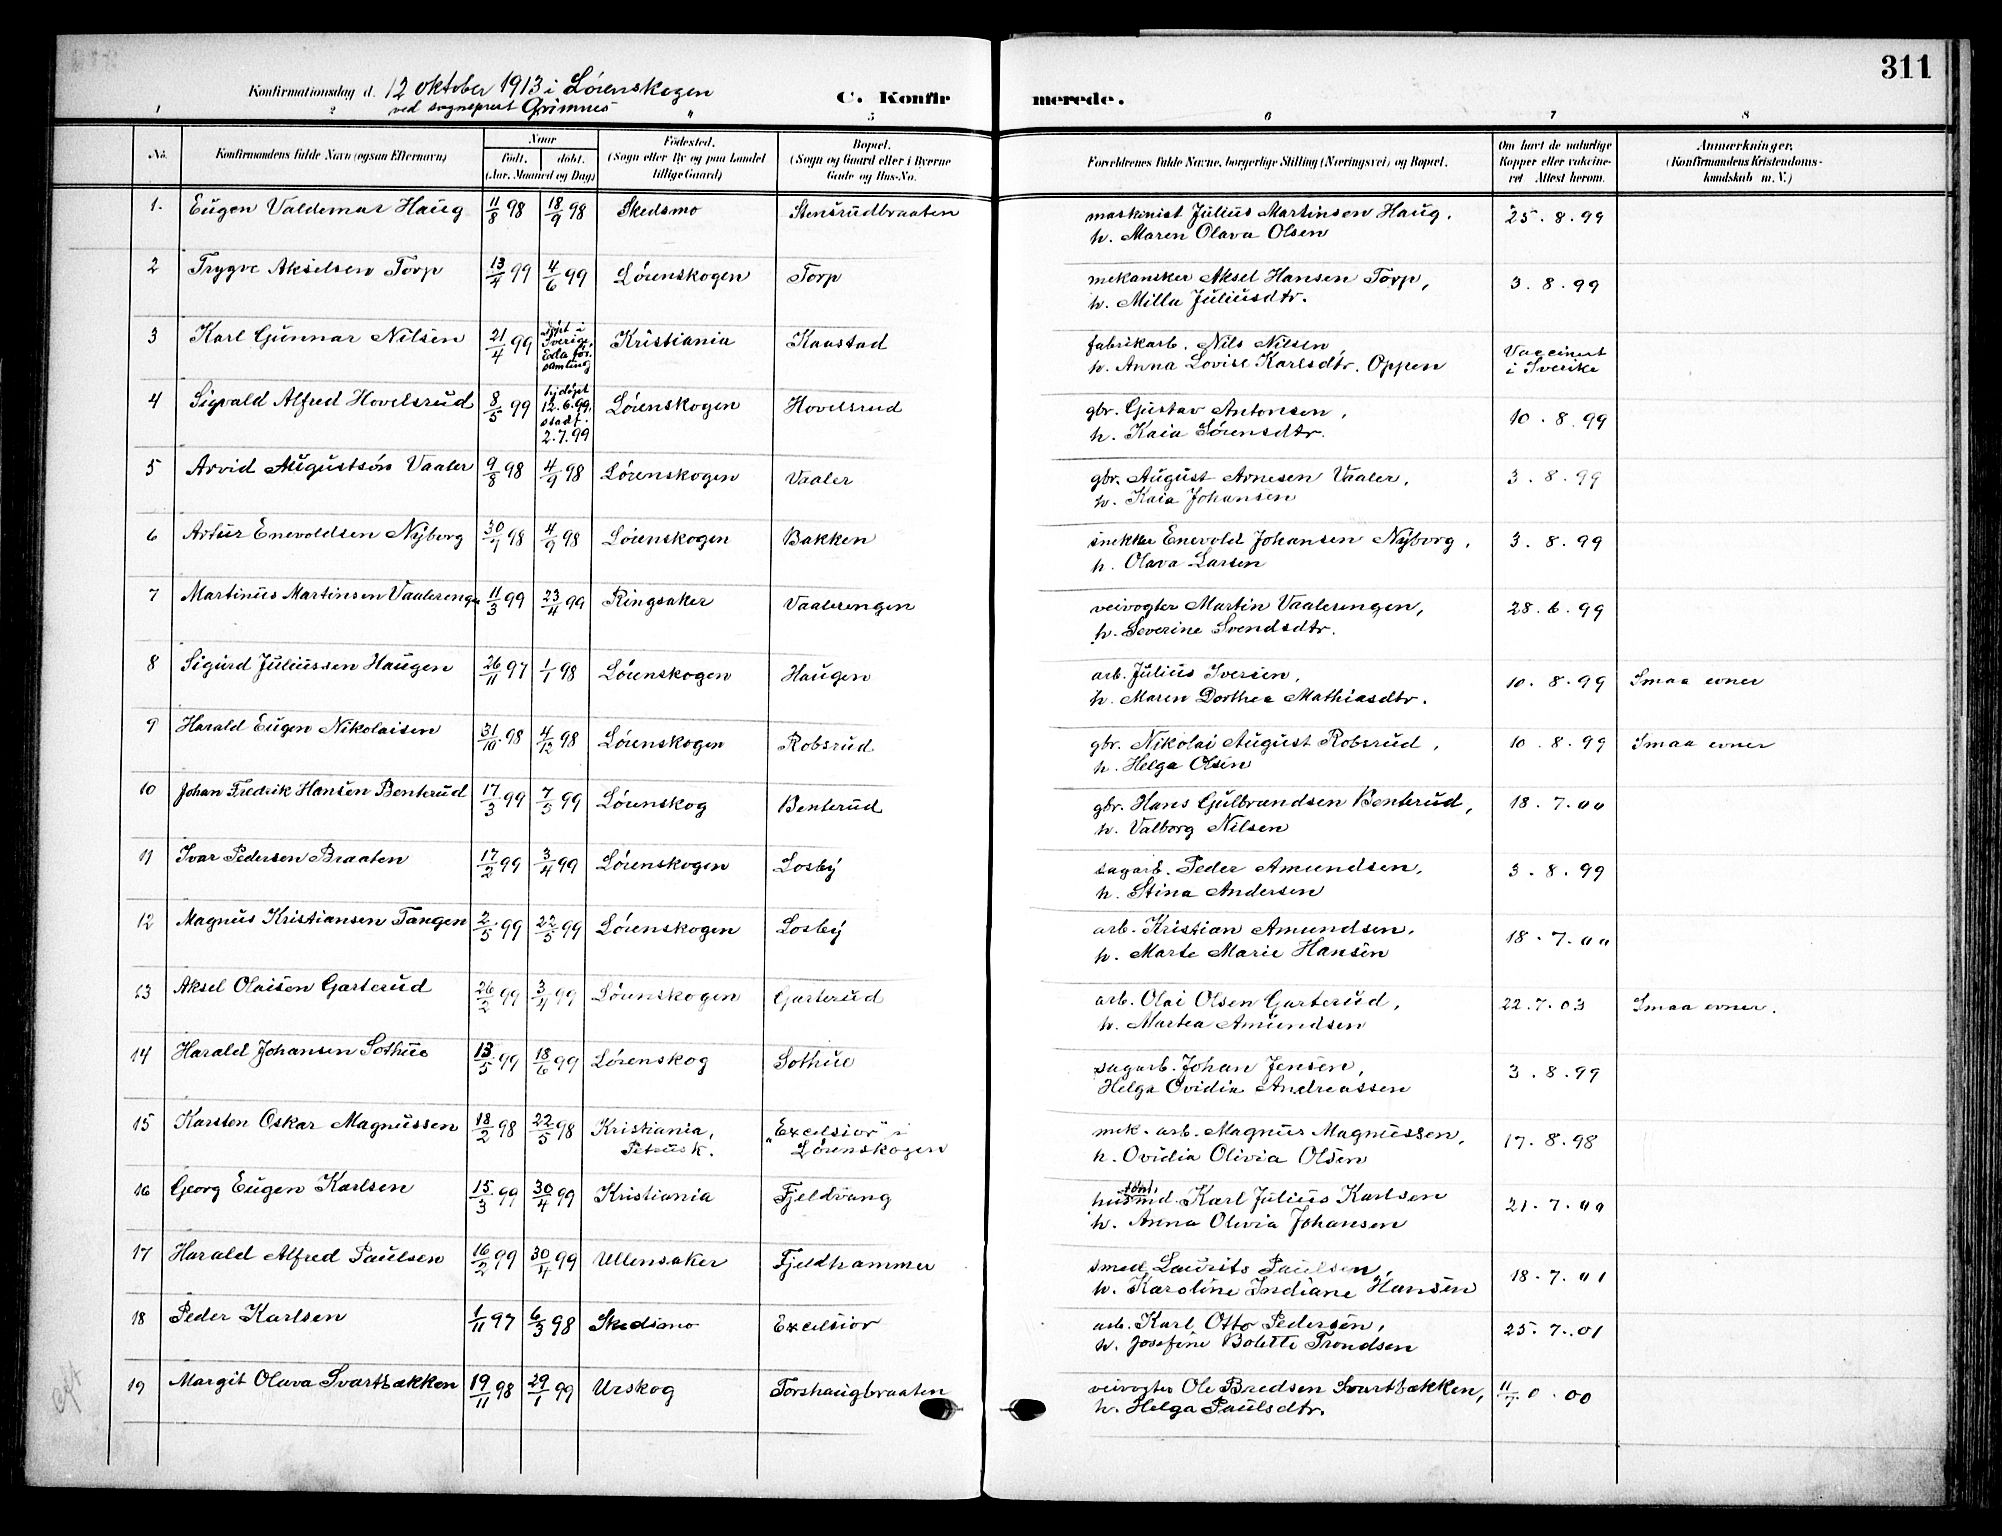 311
Konfirmationsdag d. 12 oktober 1913 i Lörenskogen
ved sogneprest Grimnes
C. Konfir merede.
1 2 4 5 6 7 8
No. Konfirmandens fulde Navn (ogsaa Efternavn) Naar født. døbt. (Aar, Maaned og Dag) Fødested. (Sogn eller By og paa Landet tillige Gaard) Bopæl. (Sogn og Gaard eller i Byerne Gade og Hus-No. Forældrenes fulde Navne, borgerlige Stilling (Næringsvei) og Bopæl. Om havt de naturlige Kopper eller vakcineret Attest herom. Anmerkninger. (Konfirmandens Kristendomskundskab m. V.)
1. Eugen Valdemar Haug 11/8 98 18/9 98 Skedsmo Stensrudbraaten maskinist Julius Martinsen Haug. 25.8.99
h. Maren Olava Olsen
2 Trygve Akselsen Torp 13/4 99 4/6 99 Lörenskogen Torp mekansker Aksel Hansen Torp, 3.8.99
h. Milla Juliusdtr.
3 Karl Gunnar Nilsen 21/4 99 döpt i Sverige, Eda för samling Kristiania Kaastad fabrikarb. Nils Nilsen, Vaccinert
h. Anna Lovise Karlsdtr. Oppen i Sverike
4 Sigvald Alfred Hovelsrud 8/5 99 hjdöpt 12.6.99, stadf. 2.7.99 Lörenskogen Hovelsrud gbr. Gustav Antonsen, 10.8.99
h. Kaia Sörensdtr.
5 Arvid Augustsön Vaaler 9/8 98 4/9 98 Lörenskogen Vaaler gbr. August Arnesen Vaaler, 3.8.99
h. Kaia Johansen
6 Artur Enevoldsen Nyborg 30/7 98 4/9 98 Lörenskogen Bakken snekker Enevold Johansen Nyborg, 3.8.99
h. Olava Larsen
7 Martinus Martinsen Vaalerengen 11/3 99 23/4 99 Ringsaker Vaalerengen veivogter Martin Vaalerengen, 28.6.99
h. Severine Svendsdtr.
8 Sigurd Juliussen Haugen 26/11 97 1/1 98 Lörenskogen Haugen arb. Julius Iversen, 10.8.99 Smaa evner
h. Maren Dorthea Mathiasdtr.
9 Harald Eugen Nikolaisen 31/10 98 4/12 98 Lörenskogen Robsrud gbr. Nikolai August Robsrud, 10.8.99 Smaa evner
h. Helga Olsen
10 Johan Fredrik Hansen Benterud 17/3 99 7/5 99 Lörenskog Benterud gbr. Hans Gulbrandsen Benterud, 18.7.00
h. Valborg Nilsen
11 Ivar Pedersen Braaten 17/2 99 3/4 99 Lörenskogen Losby sagarb. Peder Amundsen, 3.8.99
h. Stina Andersen
12 Magnus Kristiansen Tangen 2/5 99 22/5 99 Lörenskogen Losby arb. Kristian Amundsen, 18.7.00
h. Marte Marie Hansen
13 Aksel Olaisen Garterud 26/2 99 3/4 99 Lörenskogen Garterud arb. Olai Olsen Garterud, 22.7.03 Smaa evner.
h. Martea Amundsen
14 Harald Johansen Sothue 13/5 99 18/6 99 Lörenskog Sothue sagarb. Johan Jensen, 3.8.99
Helga Ovidia Andreassen
15 Karsten Oskar Magnussen 18/2 98 22/5 98 Kristiania, Petrus k. "Excelsior" i Lörenskogen mek. arb. Magnus Magnussen, 17.8.98
h. Ovidia Olivia Olsen
16 Georg Eugen Karlsen 15/3 99 30/4 99 Kristiania Fjeldvang husmd. Karl Julius Karlsen 21.7.00
h. Anna Olivia Johansen
17 Harald Alfred Paulsen 16/2 99 30/4 99 Ullensaker Fjeldhammer smed Laurits Paulsen, 18.7.01
h. Karoline Indiane Hansen
18 Peder Karlsen 1/11 97 6/3 98 Skedsmo Excelsior arb. Karl Otto Pedersen, 25.7.01
h. Josefine Bolette Trondsen
19 Margit Olava Svartbækken 19/11 98 29/1 99 Urskog Torshaugbraaten veivogter Ole Bredsen Svartbækken, 11/7 0.00
h. Helga Paulsdtr.